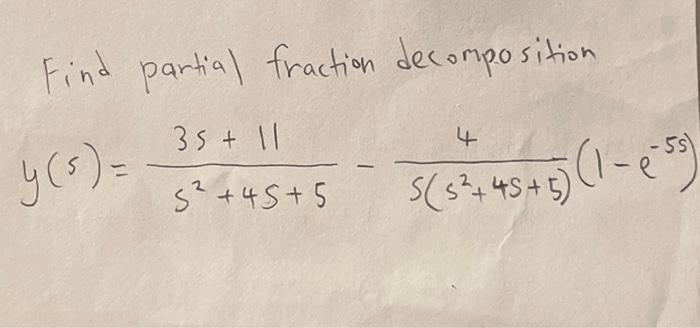 Find partial fraction decomposition
y(s) = \frac{3s + 11}{s^2 + 4s + 5} - \frac{4}{s(s^2 + 4s + 5)} (1 - e^{-5s})